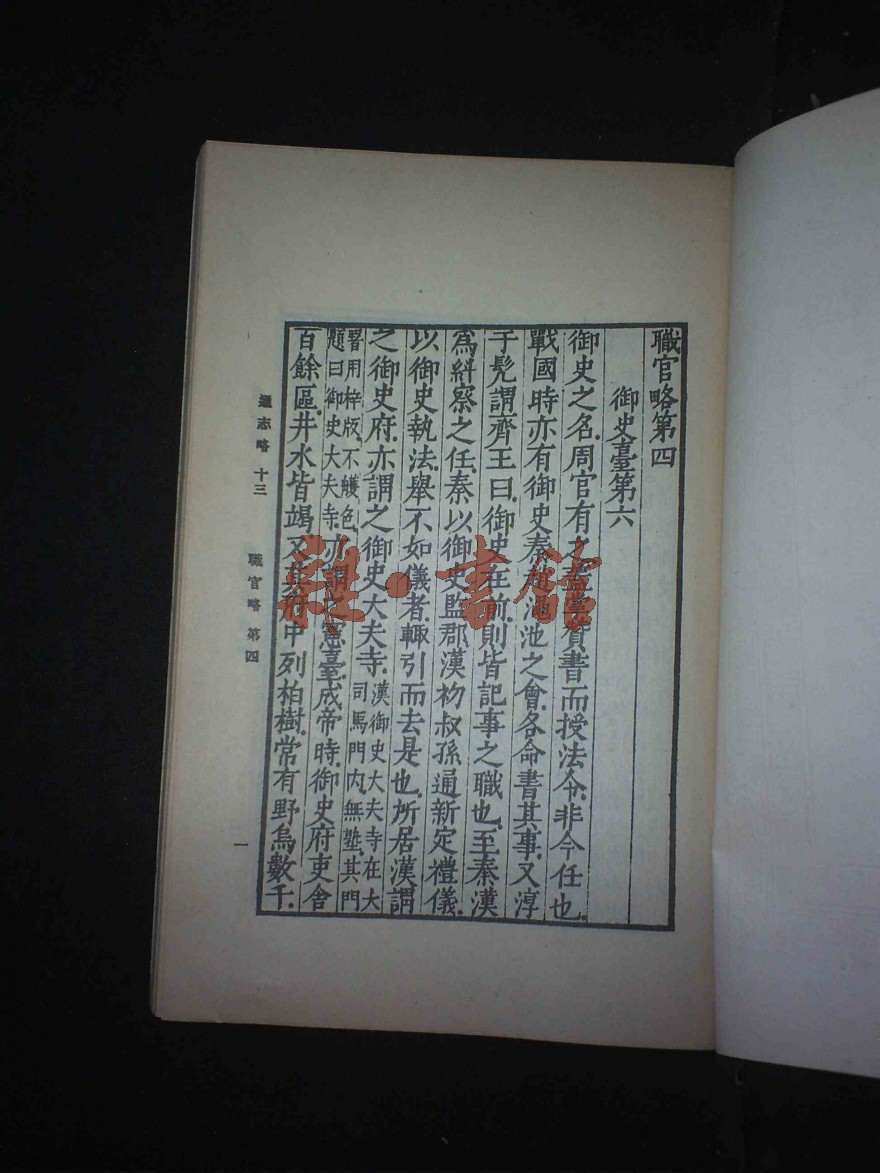 職官略第四
御史臺第六
御史之名周官有之蓋掌贊書而授法令非今任也
戰國時亦有御史秦趙澠池之會各命書其事又淳
于髠謂齊王曰御史在前則皆記事之職也至秦漢
為糾察之任秦以御史監郡漢初叔孫通新定禮儀
以御史執法舉不如儀者輙引而去是也所居漢謂
之御史府亦謂之御史大夫寺漢御史大夫寺在大
司馬門內無塾其門
署用梓版不雘色
題曰御史大夫寺亦謂之憲臺成帝時御史府吏舍
百餘區井水皆竭又其府中列柏樹常有野烏數千
通志略 十三 職官略 第四 一
雜·書館